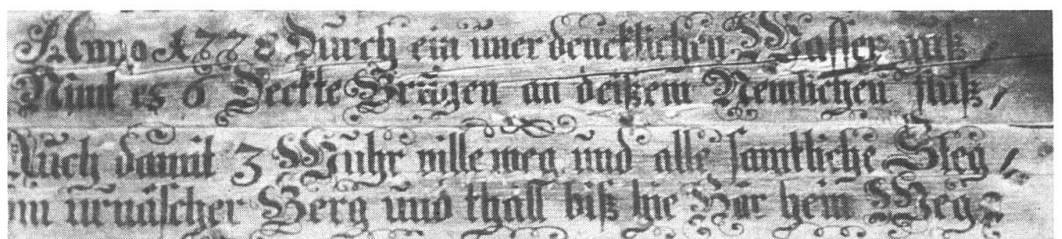 Anno 1778 Durch ein ūner dencklichen Wasser guß
Nimt es 6 Deckte Brügen an deißem Nemlichen fluß,
Auch damit 3 Wuhr ville weg ūnd alle samtliche Steg,
im ūrnäscher Berg und thall biß hie Bär hein Weg